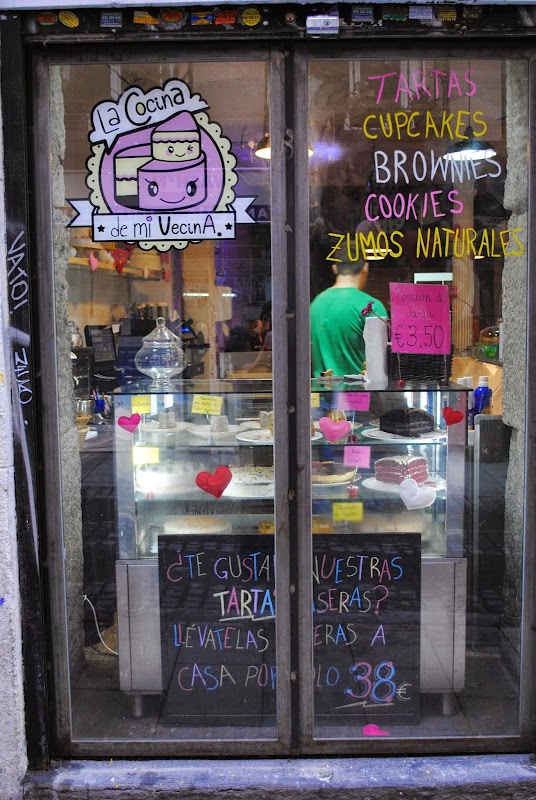 La Cocina
de mi VecinA.
TARTAS
CUPCAKES
BROWNIES
COOKIES
ZUMOS NATURALES
Porcion de
tarta
€3,50
¿TE GUSTA NUESTRAS
TARTA ASERAS?
LLÉVATELAS ERAS A
CASA POR LO 38€